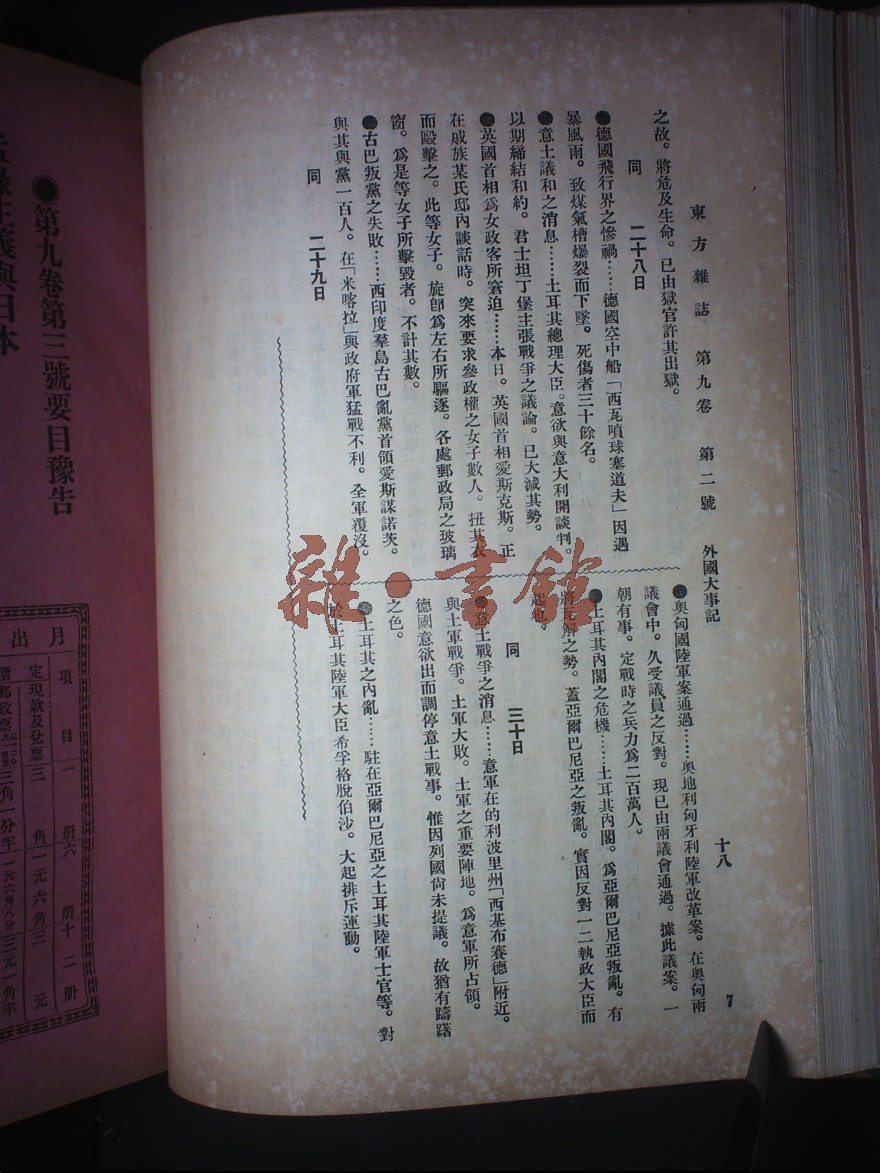 東方雜誌 第九卷 第二號 外國大事記 十八
7
之故。將危及生命。已由獄官許其出獄。
同 二十八日
●德國飛行界之慘禍……德國空中船「西瓦噴球塞道夫」因遇
暴風雨。致煤氣槽爆裂而下墜。死傷者三十餘名。
●意土議和之消息……土耳其總理大臣。意欲與意大利開談判。
以期締結和約。君士坦丁堡主張戰爭之議論。已大減其勢。
●英國首相爲女政客所窘迫……本日。英國首相愛斯克斯。正
在戚族某氏邸內談話時。突來要求參政權之女子數人。扭其衣
而毆擊之。此等女子。旋卽爲左右所驅逐。各處郵政局之玻璃
窗。爲是等女子所擊毀者。不計其數。
●古巴叛黨之失敗……西印度羣島古巴亂黨首領愛斯謀諾茨。
與其與黨一百人。在「米喀拉」與政府軍猛戰不利。全軍覆沒。
同 二十九日
●奧匈國陸軍案通過……奧地利匈牙利陸軍改革案。在奧匈兩
議會中。久受議員之反對。現已由兩議會通過。據此議案。一
朝有事。定戰時之兵力爲二百萬人。
●土耳其內閣之危機……土耳其內閣。爲亞爾巴尼亞叛亂。有
將瓦解之勢。蓋亞爾巴尼亞之叛亂。實因反對一二執政大臣而
起也。
同 三十日
●意土戰爭之消息……意軍在的利波里州「西基布賽德」附近。
與土軍戰爭。土軍大敗。土軍之重要陣地。爲意軍所占領。
德國意欲出而調停意土戰事。惟因列國尙未提議。故猶有躊躇
之色。
●土耳其之內亂……駐在亞爾巴尼亞之土耳其陸軍士官等。對
於土耳其陸軍大臣希孚格脫伯沙。大起排斥運動。
雜·書館
●第九卷第三號要目豫告
主義與日本
月出
項目 一册 六册 十二册
定現款及兌票 三角 一元六角 三元
郵政票 三角一分 一元六角八分 三元一角